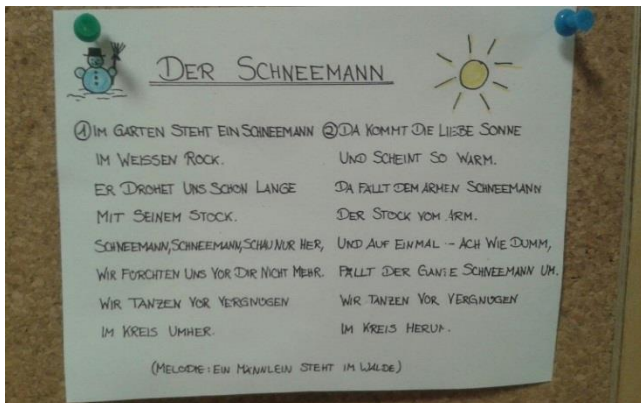 DER SCHNEEMANN
① IM GARTEN STEHT EIN SCHNEEMANN
IM WEISSEN ROCK.
ER DROHET UNS SCHON LANGE
MIT SEINEM STOCK.
SCHNEEMANN, SCHNEEMANN, SCHAU NUR HER,
WIR FÜRCHTEN UNS VOR DIR NICHT MEHR.
WIR TANZEN VOR VERGNÜGEN
IM KREIS UMHER.
② DA KOMMT DIE LIEBE SONNE
UND SCHEINT SO WARM.
DA FÄLLT DEM ARMEN SCHNEEMANN
DER STOCK VOM ARM.
UND AUF EINMAL - ACH WIE DUMM,
FÄLLT DER GANZE SCHNEEMANN UM.
WIR TANZEN VOR VERGNÜGEN
IM KREIS HERUM.
(MELODIE: EIN MÄNNLEIN STEHT IM WALDE)